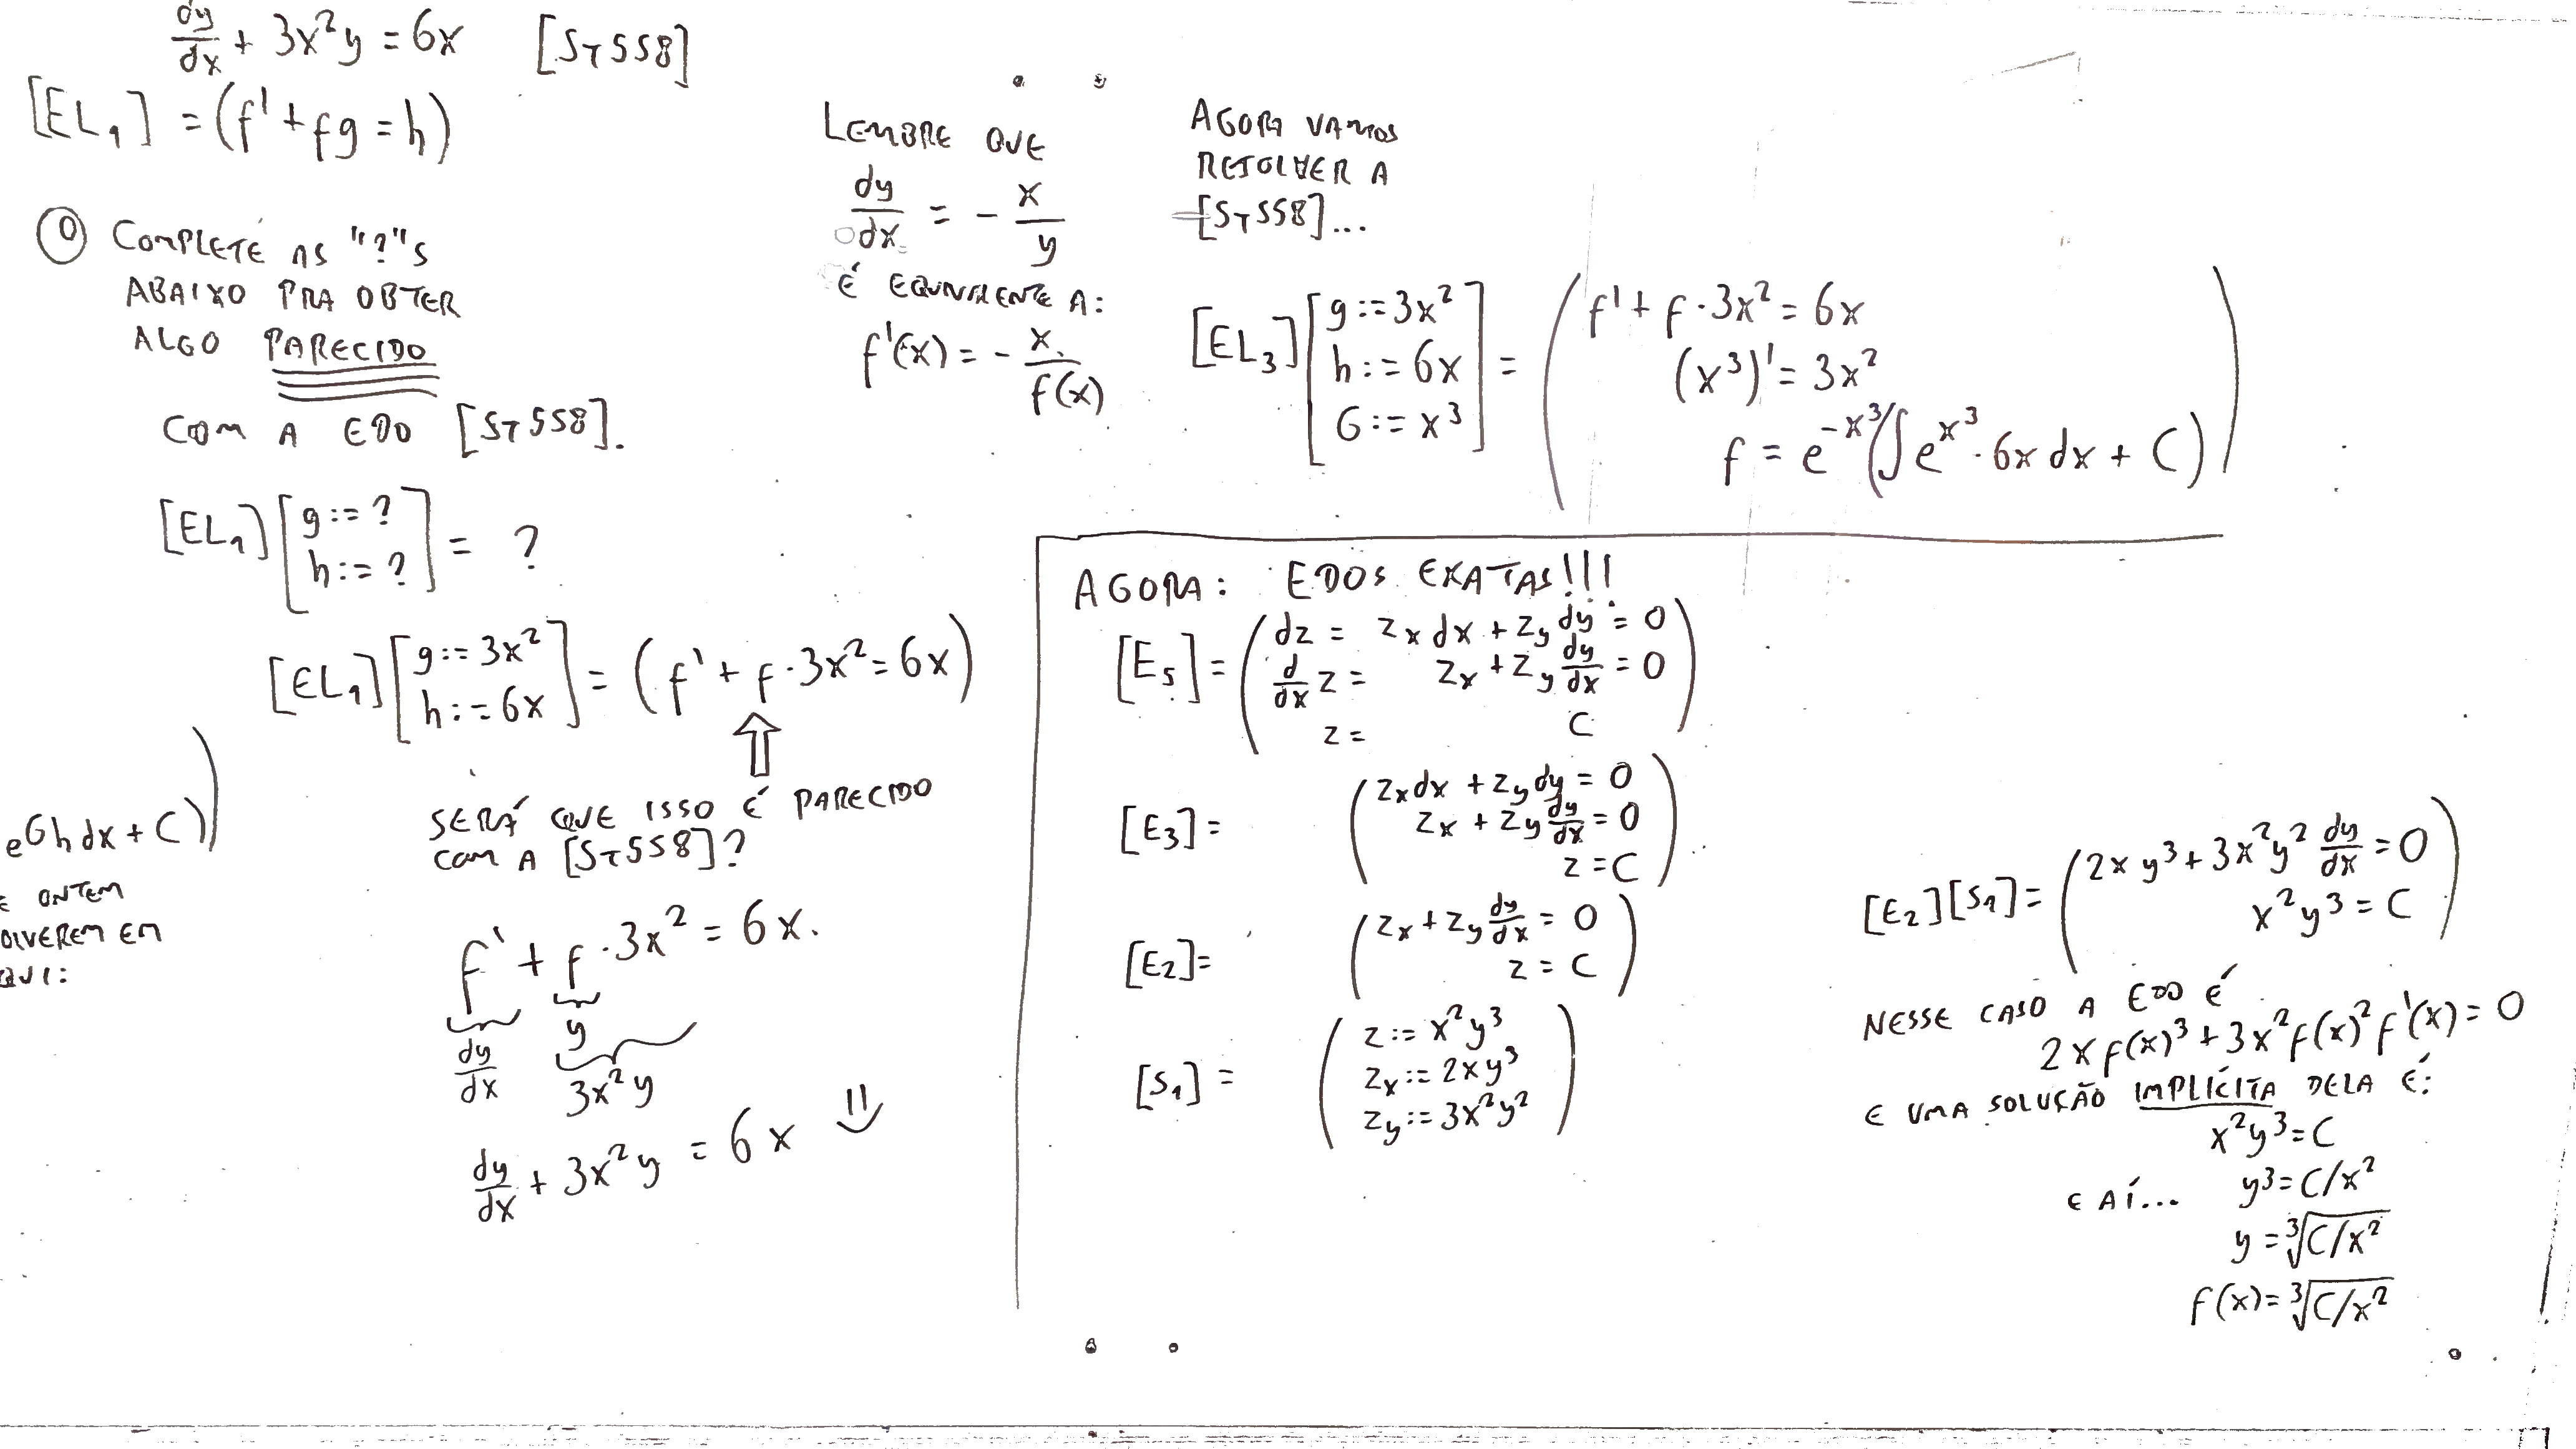 dy/dx + 3x²y = 6x [ST558]
[EL₁] = (f' + fg = h)
⓪ COMPLETE AS "?"S
ABAIXO PRA OBTER
ALGO PARECIDO
COM A EDO [ST558].
[EL₁] [g := ?
h := ?] = ?
[EL₁] [g := 3x²
h := 6x] = (f' + f·3x² = 6x)
⇑
SERÁ QUE ISSO É PARECIDO
COM A [ST558]?
f' + f·3x² = 6x.
dy/dx y
3x²y
dy/dx + 3x²y = 6x
e^G h dx + C))
E ONTEM
OLVEREM EM
QUI:
LEMBRE QUE
dy/dx = - x/y
É EQUIVALENTE A:
f'(x) = - x/f(x)
AGORA VAMOS
RESOLVER A
[ST558]...
[EL₃] [g := 3x²
h := 6x
G := x³] = (f' + f·3x² = 6x
(x³)' = 3x²
f = e^(-x³)(∫e^(x³)·6x dx + C))
AGORA: EDOS EXATAS!!!
[E₅] = (dz = z_x dx + z_y dy = 0
d/dx z = z_x + z_y dy/dx = 0
z = C)
[E₃] = (z_x dx + z_y dy = 0
z_x + z_y dy/dx = 0
z = C)
[E₂] = (z_x + z_y dy/dx = 0
z = C)
[S₁] = (z := x²y³
z_x := 2xy³
z_y := 3x²y²)
[E₂][S₁] = (2xy³ + 3x²y² dy/dx = 0
x²y³ = C)
NESSE CASO A EDO É
2x f(x)³ + 3x² f(x)² f'(x) = 0
E UMA SOLUÇÃO IMPLÍCITA DELA É:
x²y³ = C
E AÍ... y³ = C/x²
y = ³√(C/x²)
f(x) = ³√(C/x²)